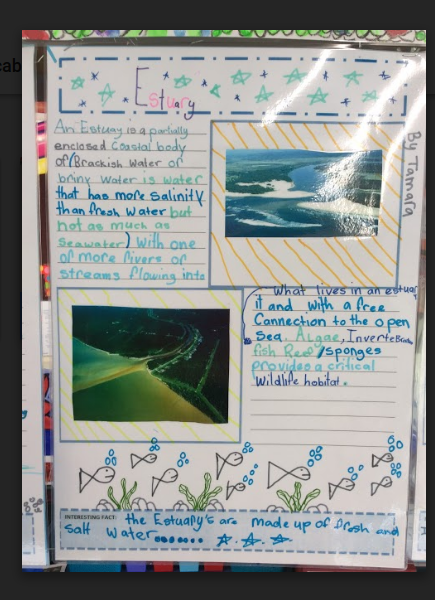 cab
Estuary
By Tamara
An Estuary is a partially
enclosed Coastal body
of (Brackish Water or
briny Water is water
that has more salinity
than fresh Water but
not as much as
Seawater) With one
of more rivers of
streams flowing into
What lives in an estuary
it and with a free
Connection to the open
Sea. Algae, Invertebrates,
fish Reef /sponges
provided a critical
Wildlife hobitat.
INTERESTING FACT: the Estuary's are made up of fresh and
salt Water